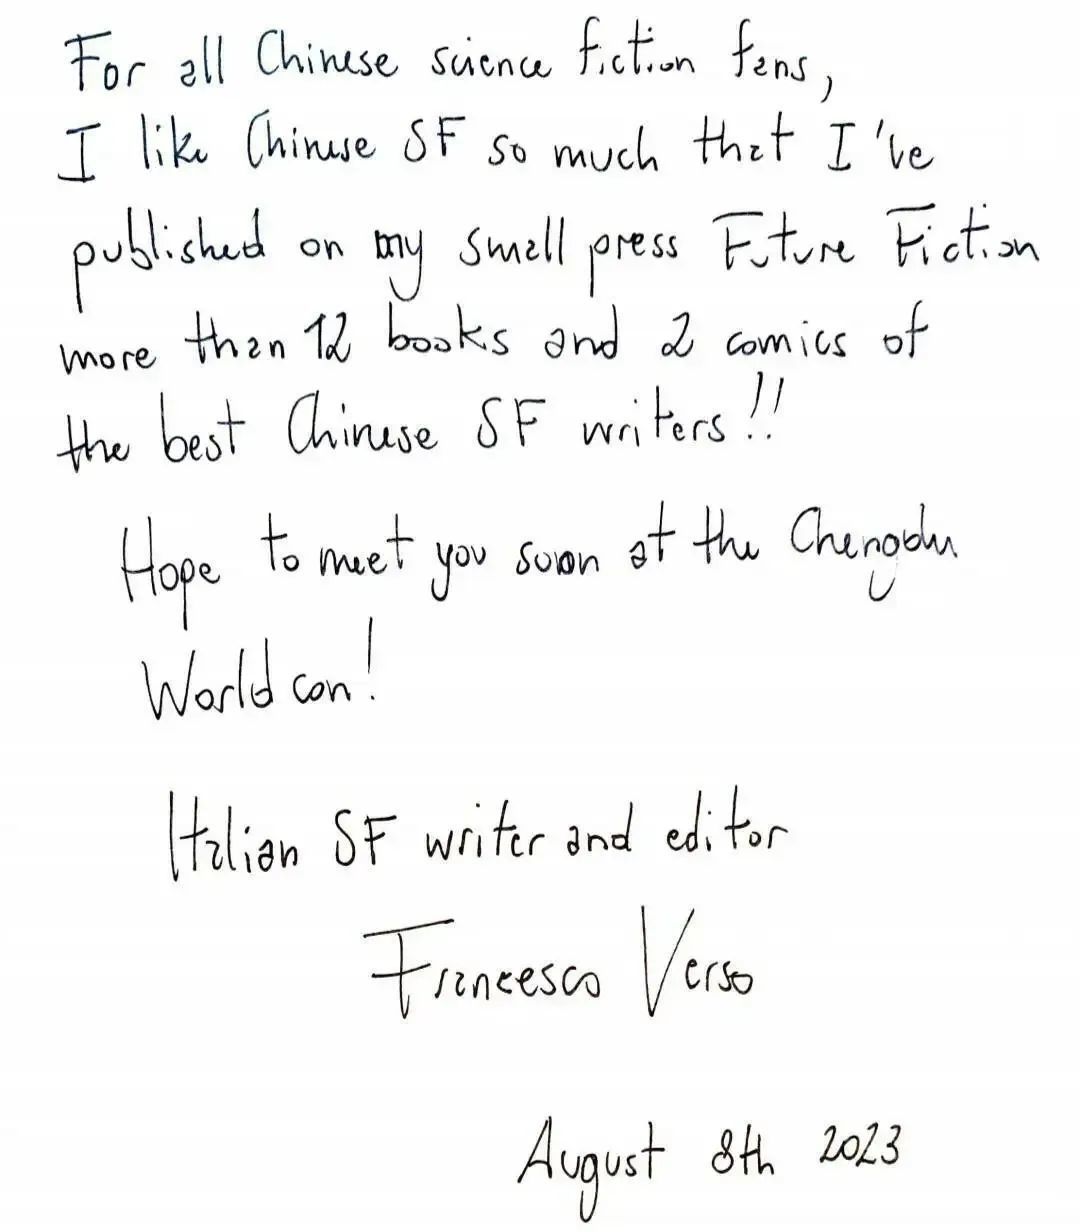 For all Chinese science fiction fans,
I like Chinese SF so much that I've
published on my small press Future Fiction
more than 12 books and 2 comics of
the best Chinese SF writers!!
Hope to meet you soon at the Chengdu
Worldcon!
Italian SF writer and editor
Francesco Verso
August 8th 2023